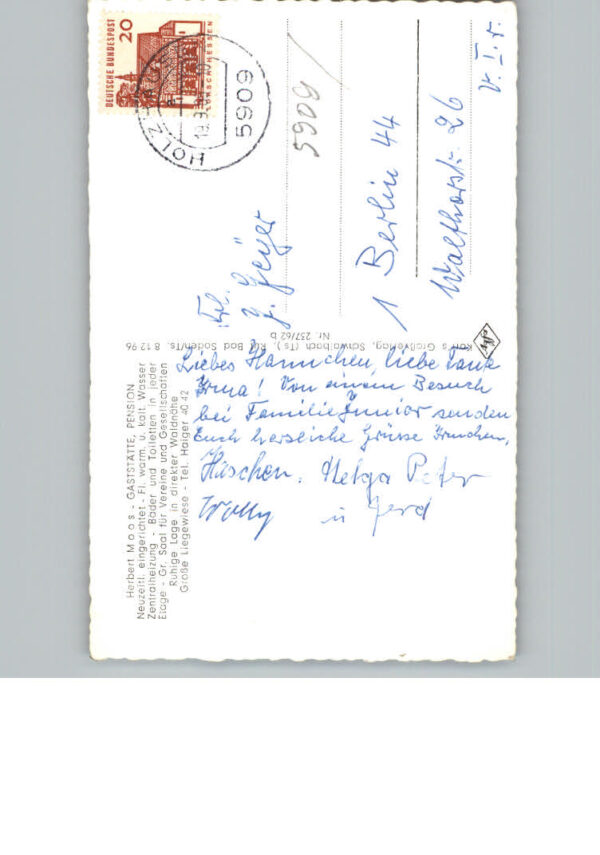 Herbert Moos - GASTSTÄTTE, PENSION
Neuzeitl. eingerichtet - Fl. warm. u. kalt. Wasser
Zentralheizung - Bäder und Toiletten in jeder
Etage - Gr. Saal für Vereine und Gesellschaften
Ruhige Lage in direkter Waldnähe
Große Liegewiese - Tel. Haiger 40 42
Liebes Hannchen, liebe Tante
Irma! Von einem Besuch
bei Familie Junior senden
Euch herzliche Grüsse Irmchen,
Häschen, Helga Peter
Wolly u Gerd
Großverlag, Schwalbach (Ts.), Bad Soden/Ts. 8 12 96
Nr. 237/62 b
Agfa
DEUTSCHE BUNDESPOST
20
LORSCH/HESSEN
HOLZ
5909
a
5909
Frl.
J. Geyer
1 Berlin 44
Walthorstr. 26
v. I. r.